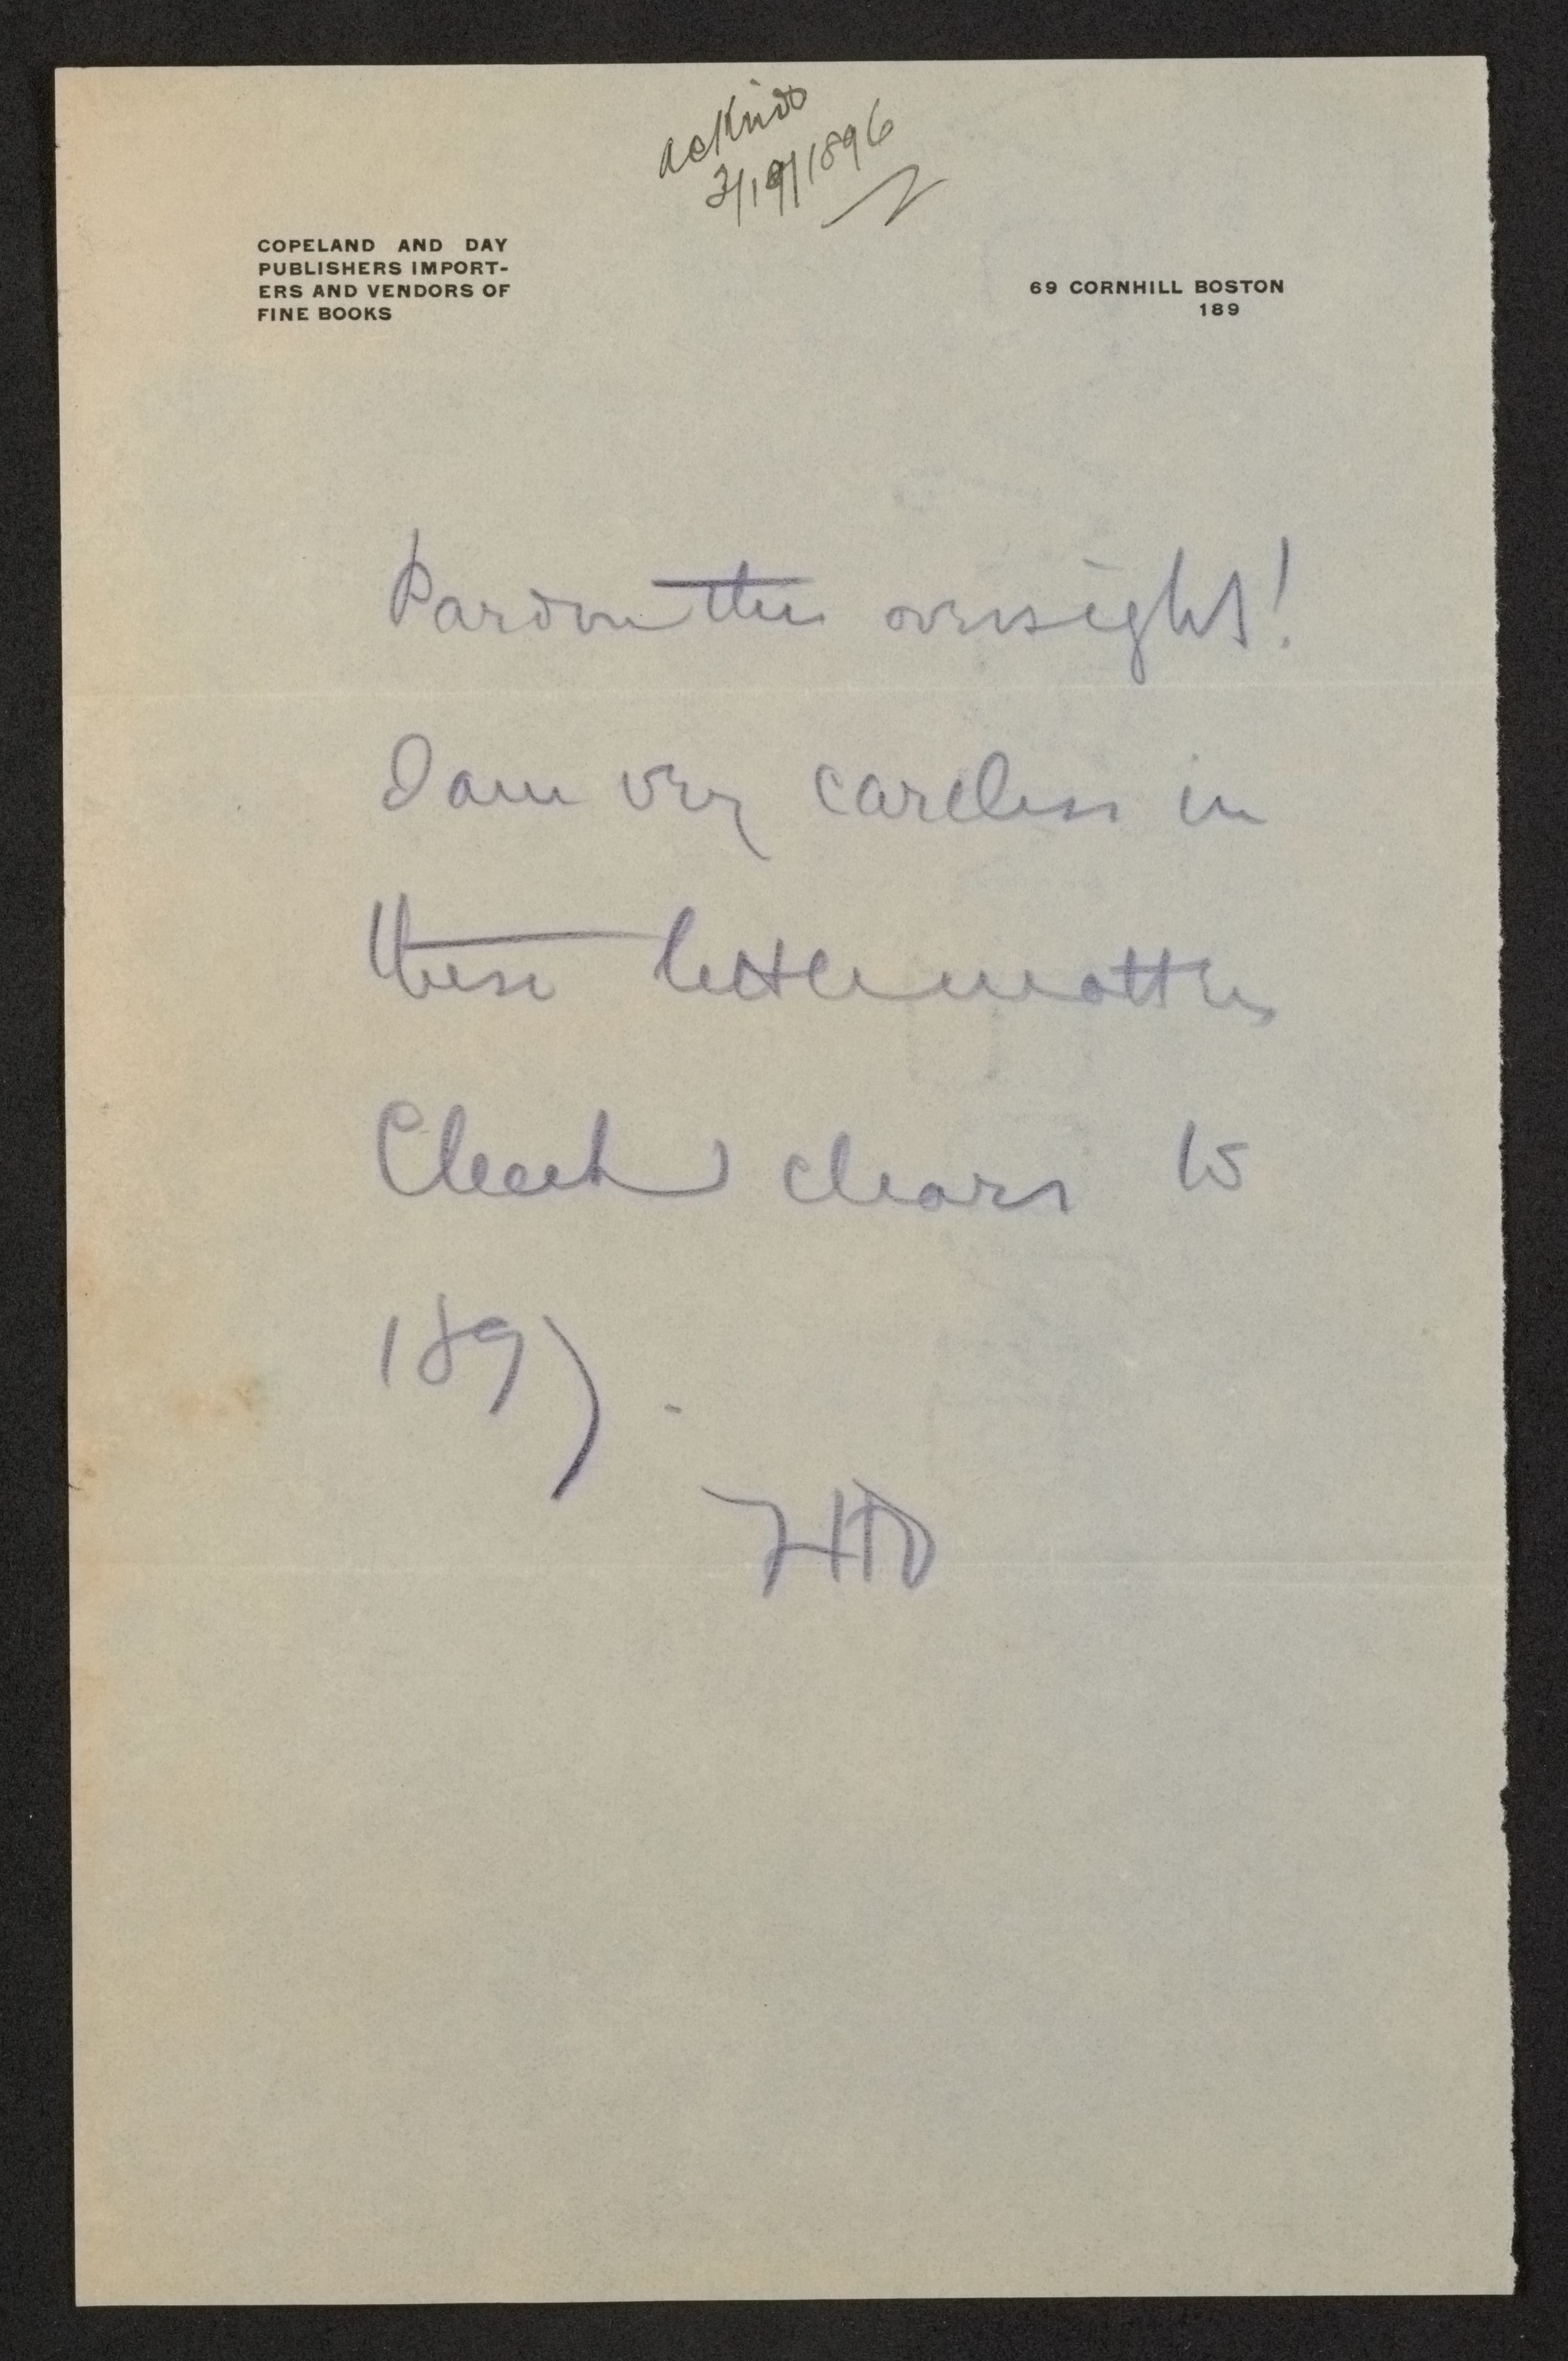 ackn'd
2/19/1896
COPELAND AND DAY
PUBLISHERS IMPORT-
ERS AND VENDORS OF
FINE BOOKS
69 CORNHILL BOSTON
189
Pardon the oversight!
I am very careless in
these little matters
Check clears to
1897.
FHD